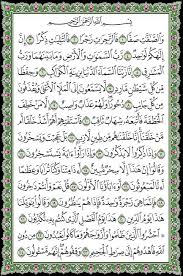 بِسْمِ اللَّهِ الرَّحْمَٰنِ الرَّحِيمِ
وَالصَّافَّاتِ صَفًّا ۝ فَالزَّاجِرَاتِ زَجْرًا ۝ فَالتَّالِيَاتِ ذِكْرًا ۝ إِنَّ
إِلَٰهَكُمْ لَوَاحِدٌ ۝ رَّبُّ السَّمَاوَاتِ وَالْأَرْضِ وَمَا بَيْنَهُمَا وَرَبُّ
الْمَشَارِقِ ۝ إِنَّا زَيَّنَّا السَّمَاءَ الدُّنْيَا بِزِينَةٍ الْكَوَاكِبِ ۝ وَحِفْظًا
مِّن كُلِّ شَيْطَانٍ مَّارِدٍ ۝ لَّا يَسَّمَّعُونَ إِلَى الْمَلَإِ الْأَعْلَىٰ وَيُقْذَفُونَ
مِن كُلِّ جَانِبٍ ۝ دُحُورًا وَلَهُمْ عَذَابٌ وَاصِبٌ ۝ إِلَّا مَنْ خَطِفَ
الْخَطْفَةَ فَأَتْبَعَهُ شِهَابٌ ثَاقِبٌ ۝ فَاسْتَفْتِهِمْ أَهُمْ أَشَدُّ خَلْقًا
أَم مَّنْ خَلَقْنَا إِنَّا خَلَقْنَاهُم مِّن طِينٍ لَّازِبٍ ۝ بَلْ عَجِبْتَ وَيَسْخَرُونَ
۝ وَإِذَا ذُكِّرُوا لَا يَذْكُرُونَ ۝ وَإِذَا رَأَوْا آيَةً يَسْتَسْخِرُونَ
۝ وَقَالُوا إِنْ هَٰذَا إِلَّا سِحْرٌ مُّبِينٌ ۝ أَإِذَا مِتْنَا وَكُنَّا تُرَابًا وَعِظَامًا
أَإِنَّا لَمَبْعُوثُونَ ۝ أَوَآبَاؤُنَا الْأَوَّلُونَ ۝ قُلْ نَعَمْ وَأَنتُمْ دَاخِرُونَ
۝ فَإِنَّمَا هِيَ زَجْرَةٌ وَاحِدَةٌ فَإِذَا هُمْ يَنظُرُونَ ۝ وَقَالُوا يَا وَيْلَنَا
هَٰذَا يَوْمُ الدِّينِ ۝ هَٰذَا يَوْمُ الْفَصْلِ الَّذِي كُنتُم بِهِ تُكَذِّبُونَ
۝ احْشُرُوا الَّذِينَ ظَلَمُوا وَأَزْوَاجَهُمْ وَمَا كَانُوا يَعْبُدُونَ ۝ مِن دُونِ
اللَّهِ فَاهْدُوهُمْ إِلَىٰ صِرَاطِ الْجَحِيمِ ۝ وَقِفُوهُمْ إِنَّهُم مَّسْئُولُونَ